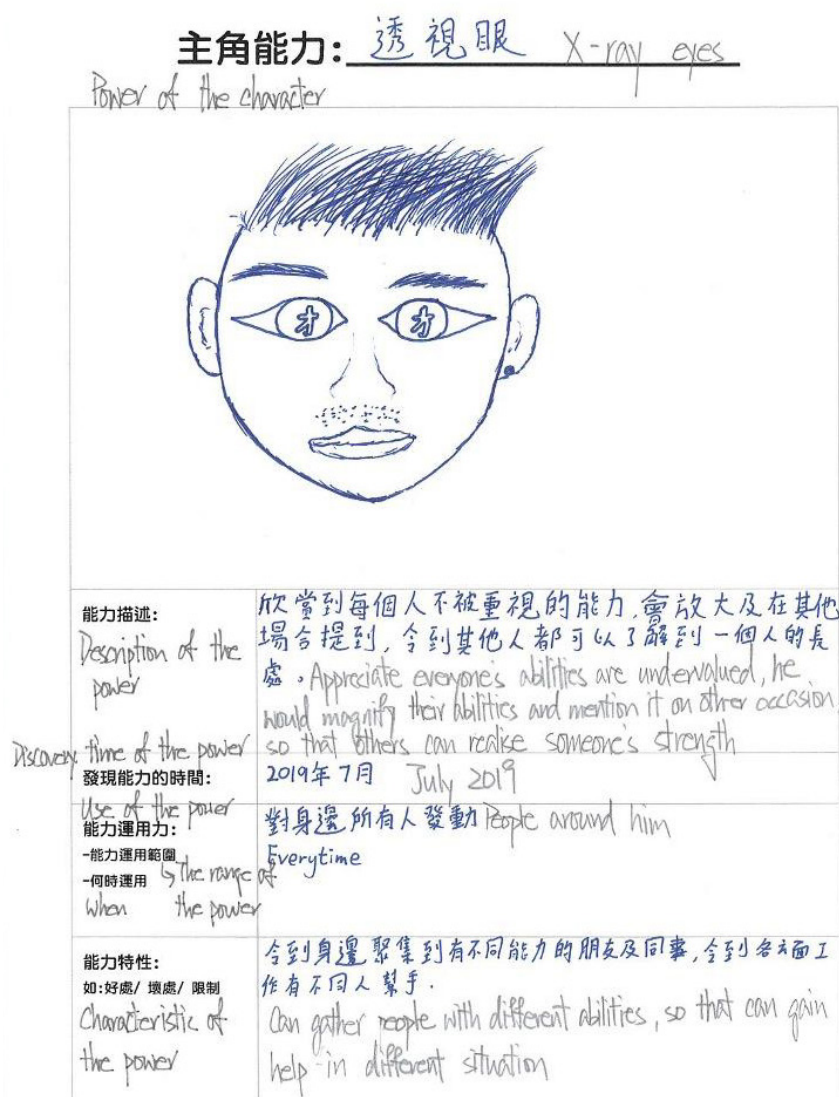 主角能力: 透視眼 X-ray eyes
Power of the character
才 才
能力描述:
Description of the
power
欣賞到每個人不被重視的能力,會放大及在其他
場合提到,令到其他人都可以了解到一個人的長
處。Appreciate everyone's abilities are undervalued, he
would magnify their abilities and mention it on other occasion,
so that others can realise someone's strength
Discovery time of the power
發現能力的時間:
2019年7月 July 2019
Use of the power
能力運用力:
-能力運用範圍
-何時運用 ↳ The range of
when the power
對身邊所有人發動 People around him
Everytime
能力特性:
如:好處/ 壞處/ 限制
Characteristic of
the power
令到身邊聚集到有不同能力的朋友及同事,令到各方面工
作有不同人幫手.
Can gather people with different abilities, so that can gain
help in different situation